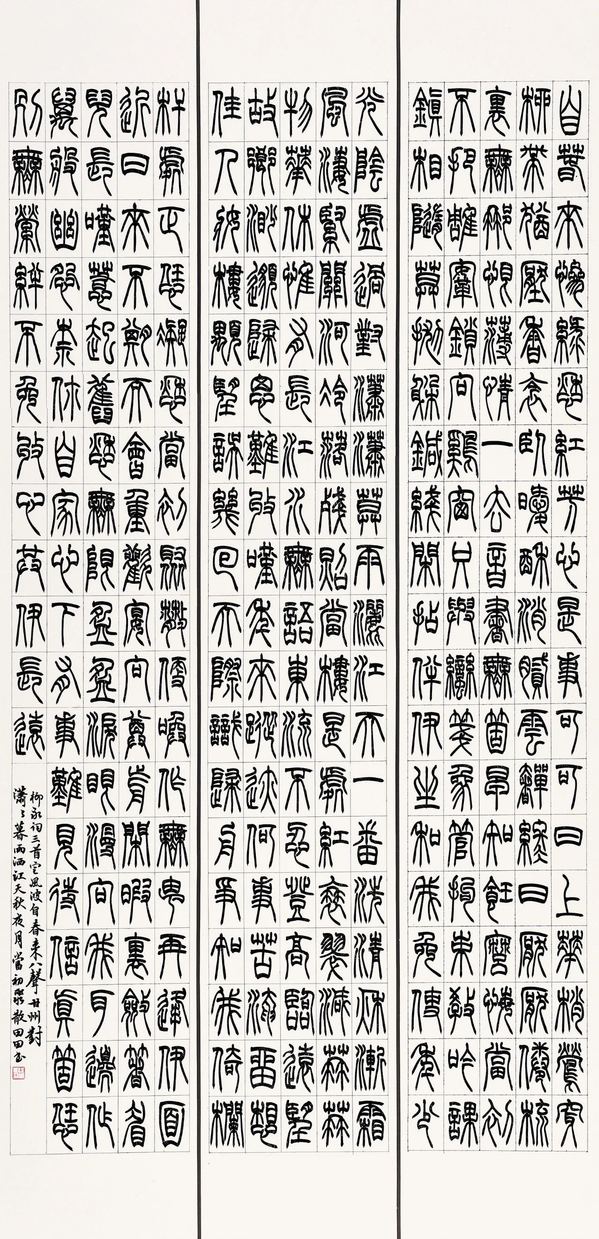 自春來慘綠愁紅芳心是事可可日上花梢鶯穿
柳帶猶壓香衾臥暖酥消膩雲嚲終日厭厭倦梳
裏無那恨薄情一去音書無箇早知恁麼悔當初
不把雕鞍鎖向雞窗只與蠻箋象管拘束教吟課
鎮相隨莫拋躲鍼綫閒拈伴伊坐和我免使年少
光陰虛過對瀟瀟暮雨灑江天一番洗清秋漸霜
風淒緊關河冷落殘照當樓是處紅衰翠減苒苒
物華休惟有長江水無語東流不忍登高臨遠望
故鄉渺邈歸思難收嘆年來蹤跡何事苦淹留想
佳人妝樓顒望誤幾回天際識歸舟爭知我倚欄
杆處正恁凝愁當初聚散便喚作無由再逢伊面
近日來不期而會重歡宴向尊前閒暇裏斂著眉
兒長嘆惹起舊愁無限盈盈淚眼漫向我耳邊作
萬般幽怨奈你自家心下有事難見待信真箇恁
別無縈絆不免收心共伊長遠
柳永詞三首定風波自春來八聲甘州對
瀟々暮雨洒江天秋夜月當初聚散田田书